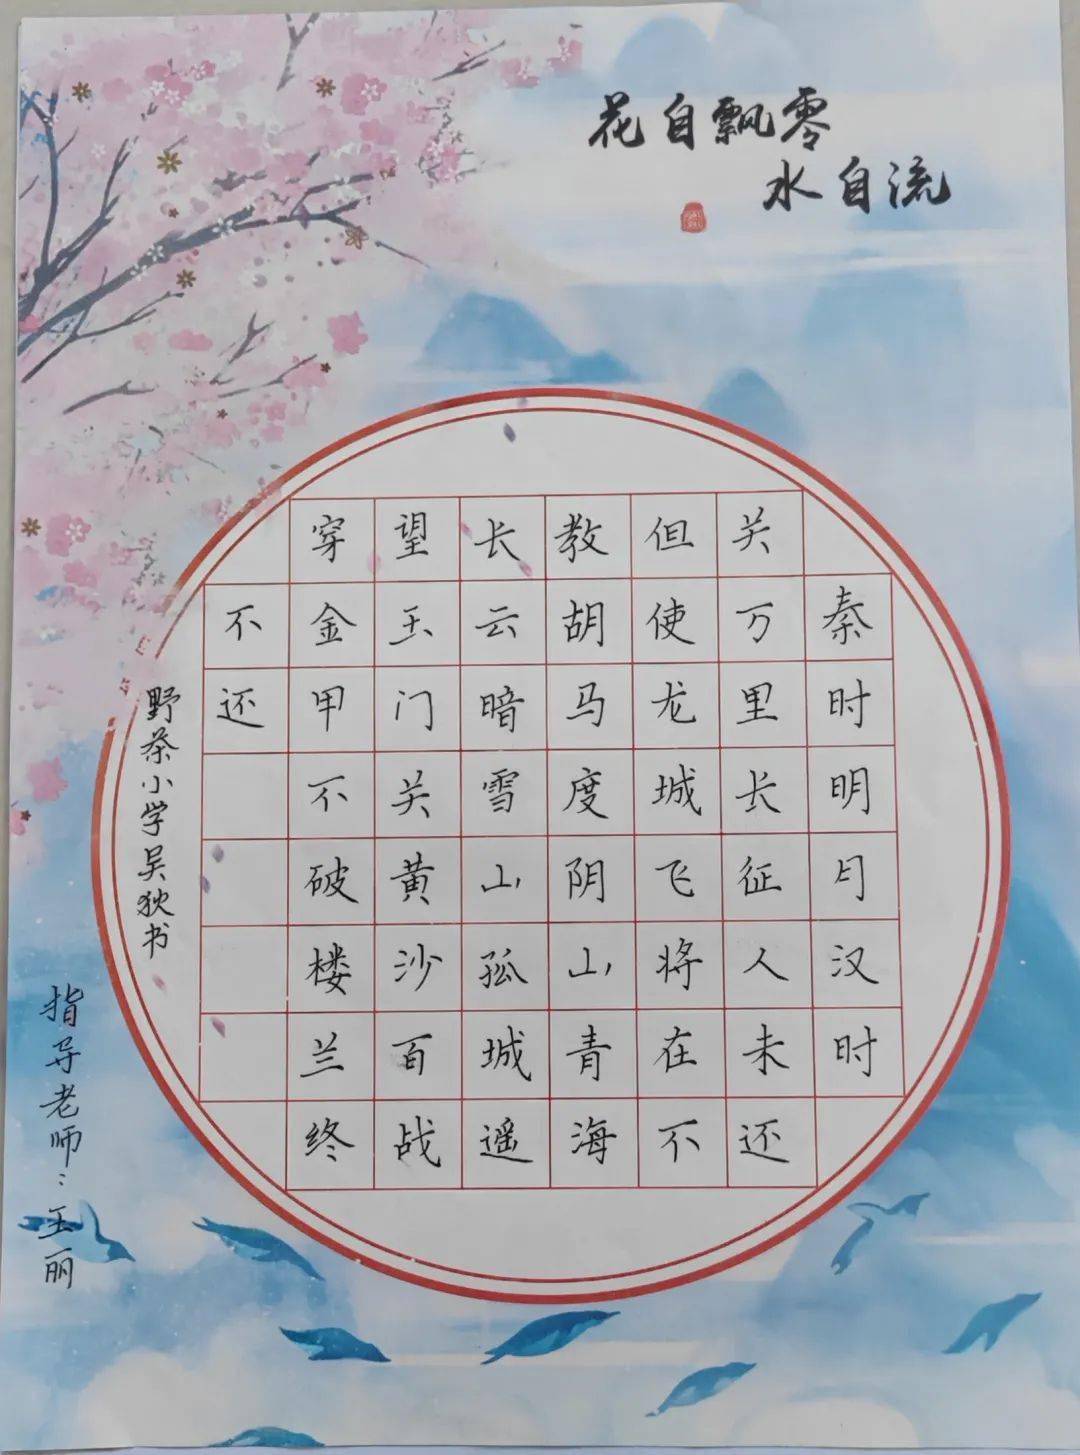 花自飘零
水自流
秦时明月汉时
关万里长征人未还
但使龙城飞将在不
教胡马度阴山青海
长云暗雪山孤城遥
望玉门关黄沙百战
穿金甲不破楼兰终
不还
野茶小学吴狄书
指导老师：王丽